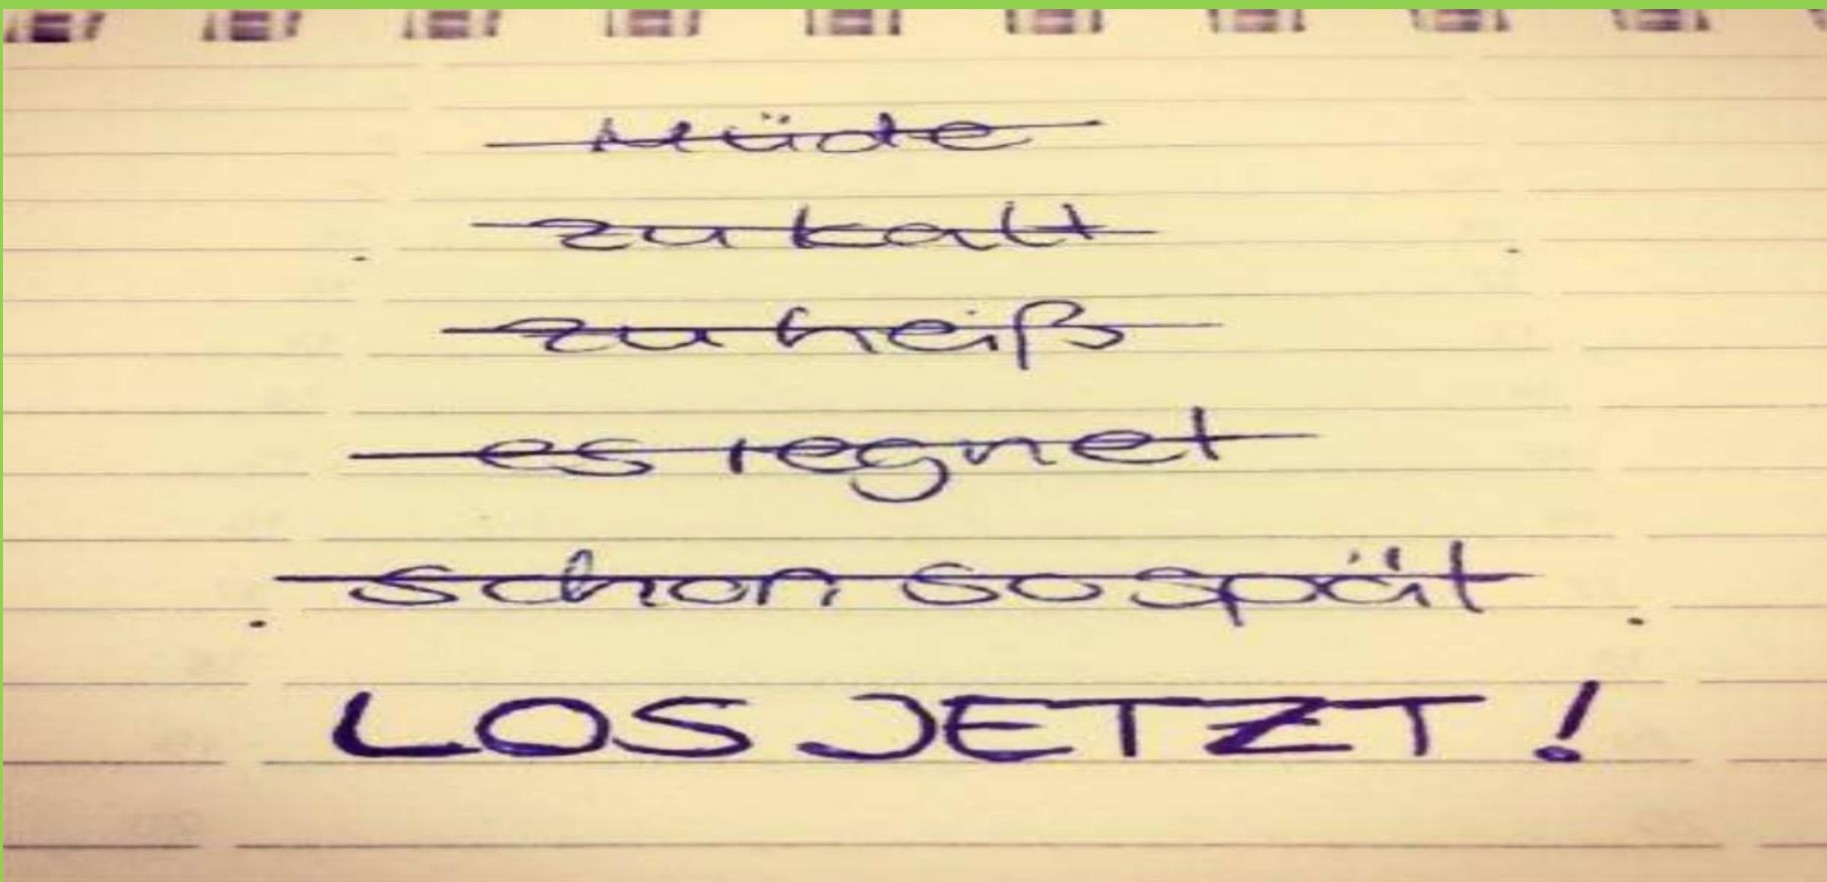 Müde
zu kalt
zu heiß
es regnet
schon so spät
LOS JETZT!